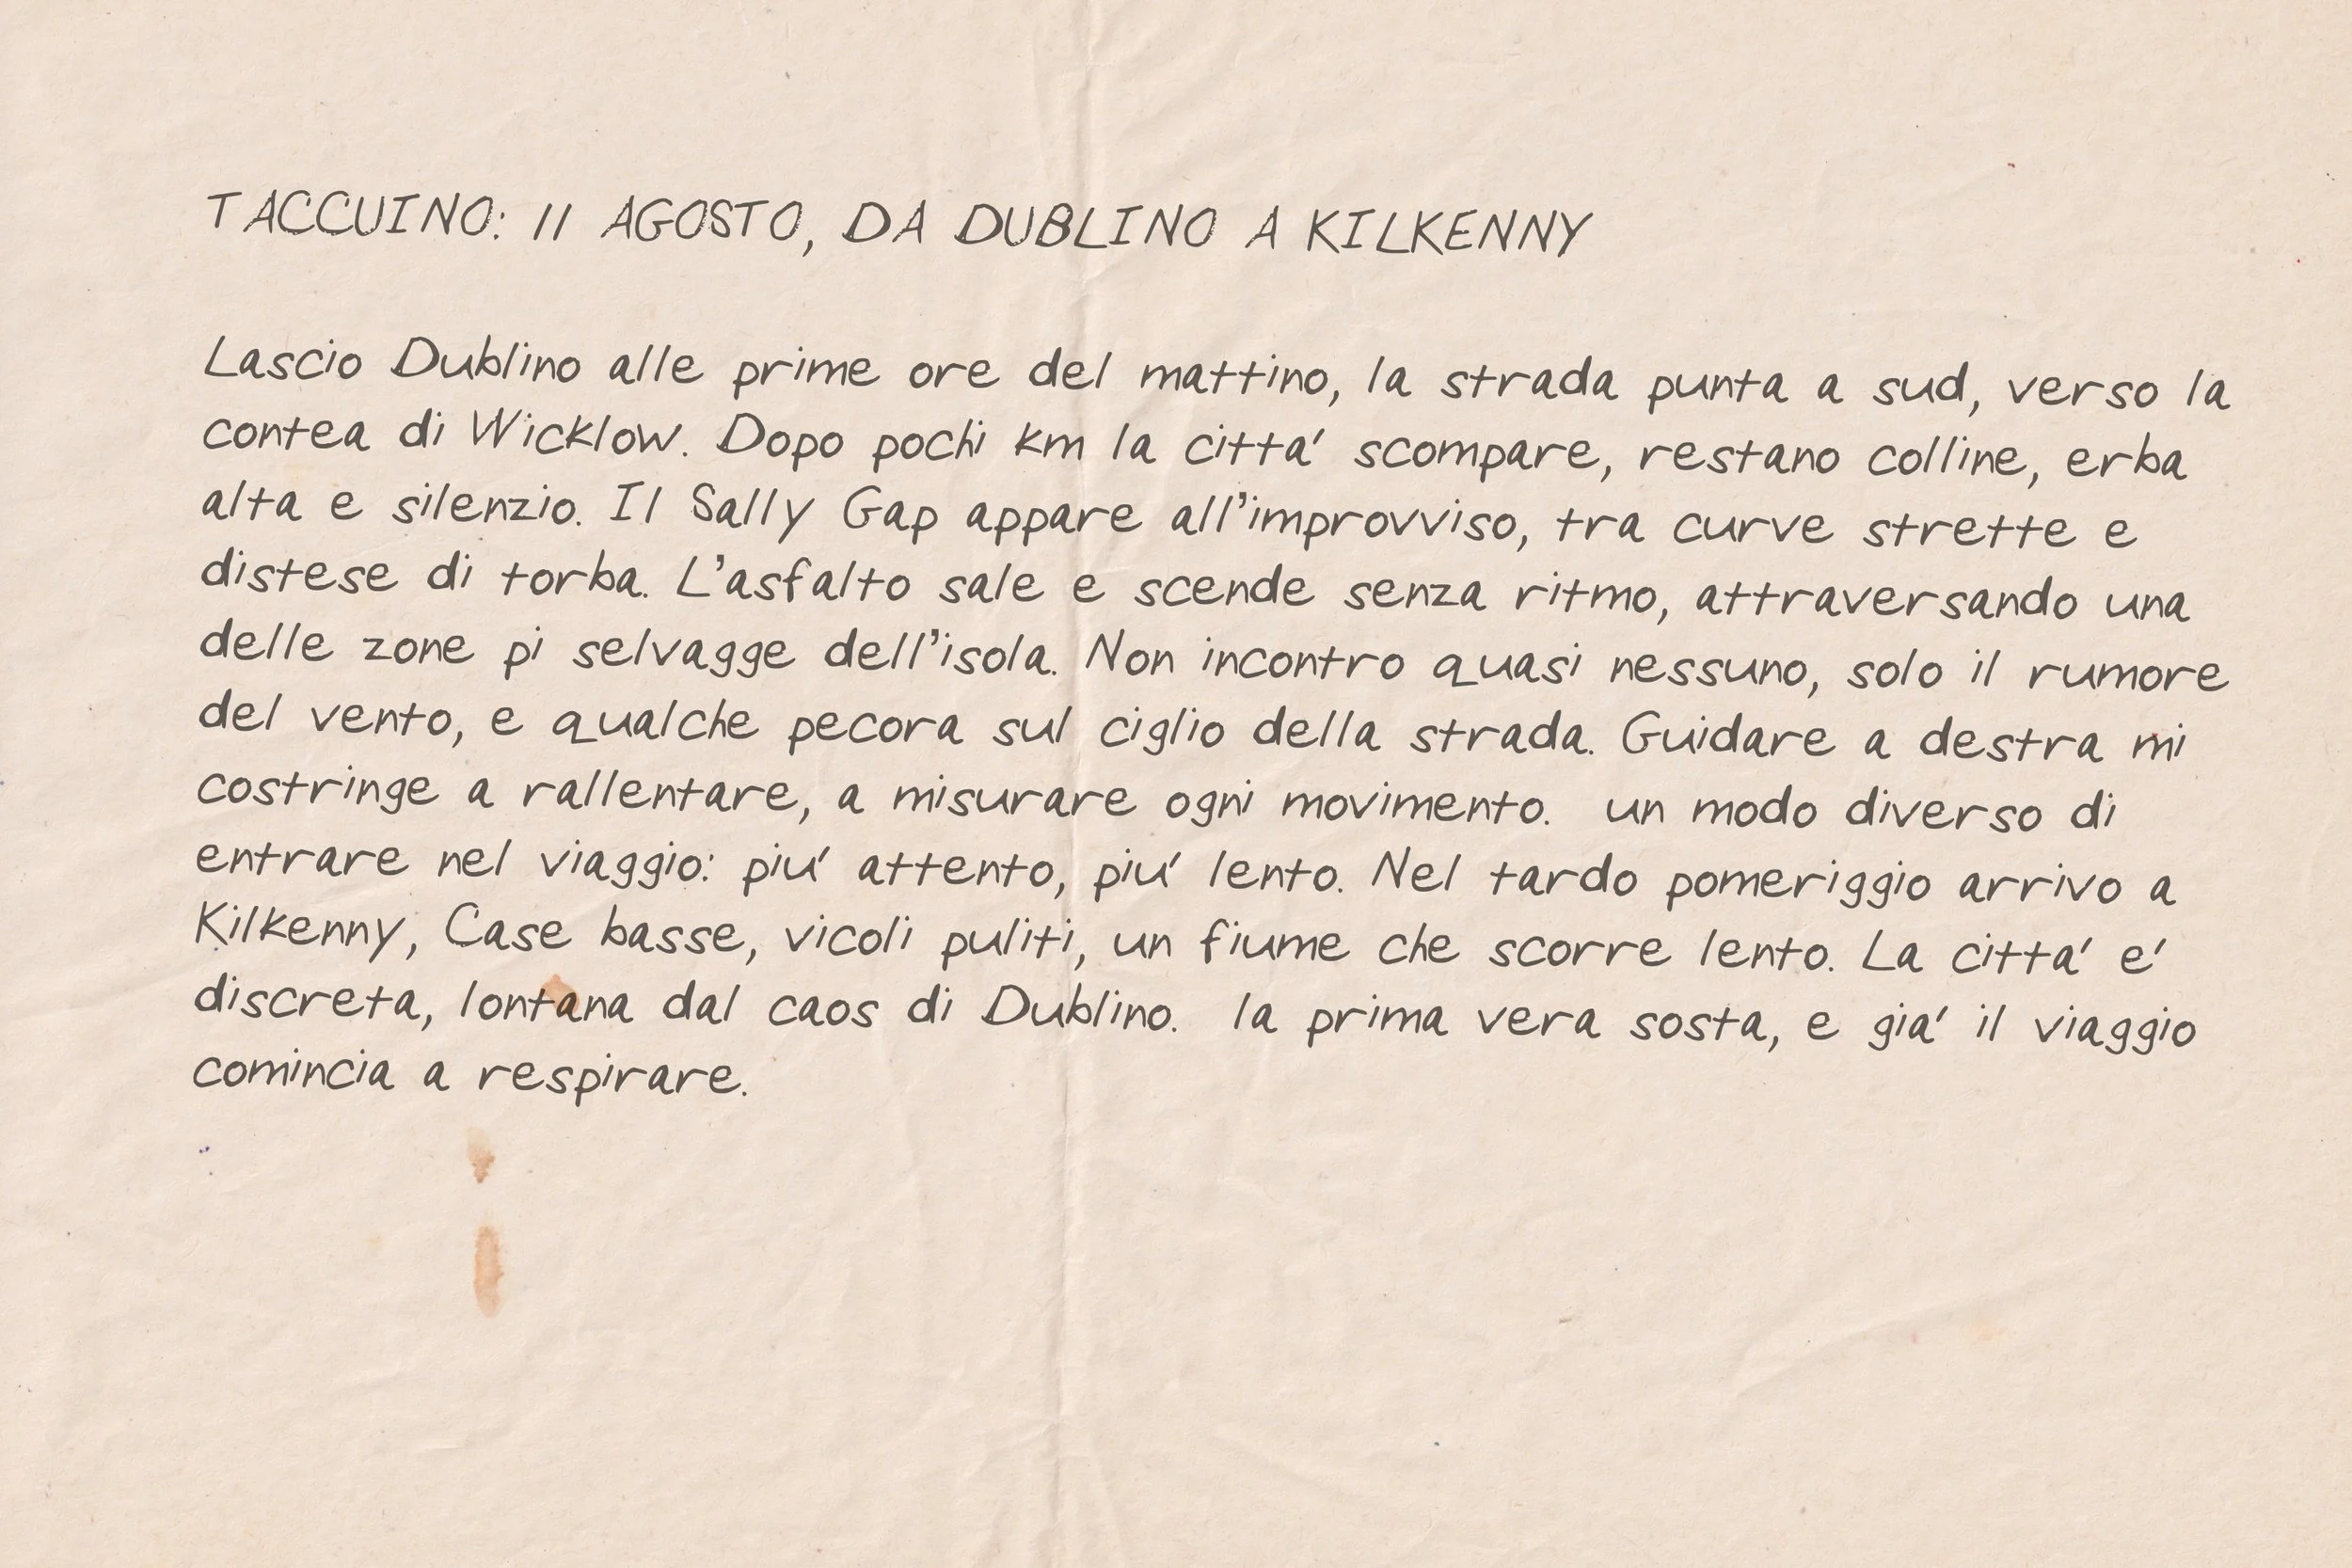 TACCUINO: 11 AGOSTO, DA DUBLINO A KILKENNY
Lascio Dublino alle prime ore del mattino, la strada punta a sud, verso la
contea di Wicklow. Dopo pochi km la citta' scompare, restano colline, erba
alta e silenzio. Il Sally Gap appare all'improvviso, tra curve strette e
distese di torba. L'asfalto sale e scende senza ritmo, attraversando una
delle zone pi selvagge dell'isola. Non incontro quasi nessuno, solo il rumore
del vento, e qualche pecora sul ciglio della strada. Guidare a destra mi
costringe a rallentare, a misurare ogni movimento.  un modo diverso di
entrare nel viaggio: piu' attento, piu' lento. Nel tardo pomeriggio arrivo a
Kilkenny, Case basse, vicoli puliti, un fiume che scorre lento. La citta' e'
discreta, lontana dal caos di Dublino.  la prima vera sosta, e gia' il viaggio
comincia a respirare.